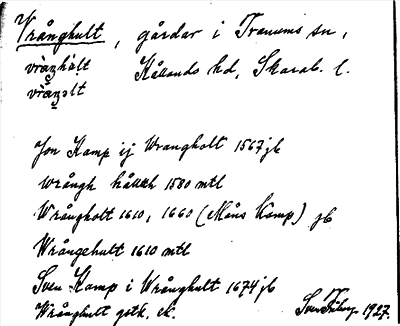 Vrånghult, gårdar i Tranums sn,
Kållands hd, Skarab. l.
Jon Kamp ij Wrangholt 1567 jb
Wrångh 1580 mtl
Wrångholt 1610, 1660 (Måns Kamp) jb
Wrångehult 1610 mtl
Sven Kamp i Wrånghult 1674 jb
Wrånghult gstk. ek.
1927.